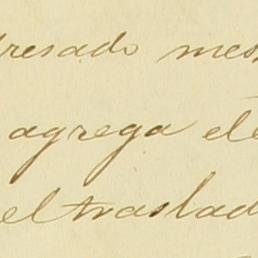 presado mes
agrega el
el traslad